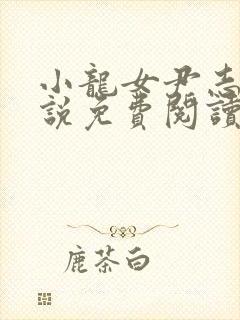 小龍女尹志
說免費閱讀
鹿茶白